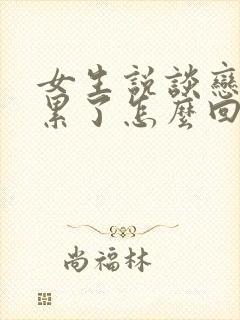 女生說談戀
累了怎麼回
尚福林